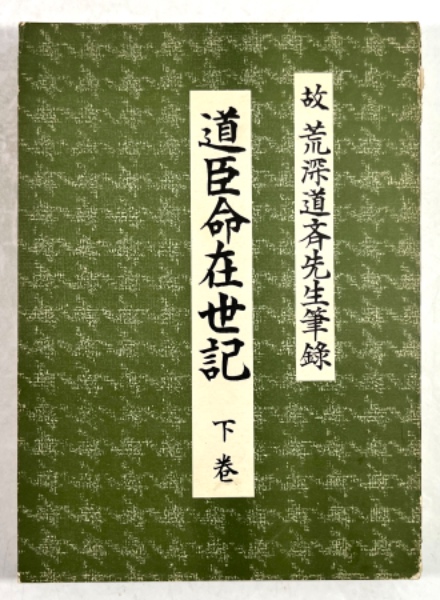 故 荒深道斉先生筆録
道臣命在世記 下巻